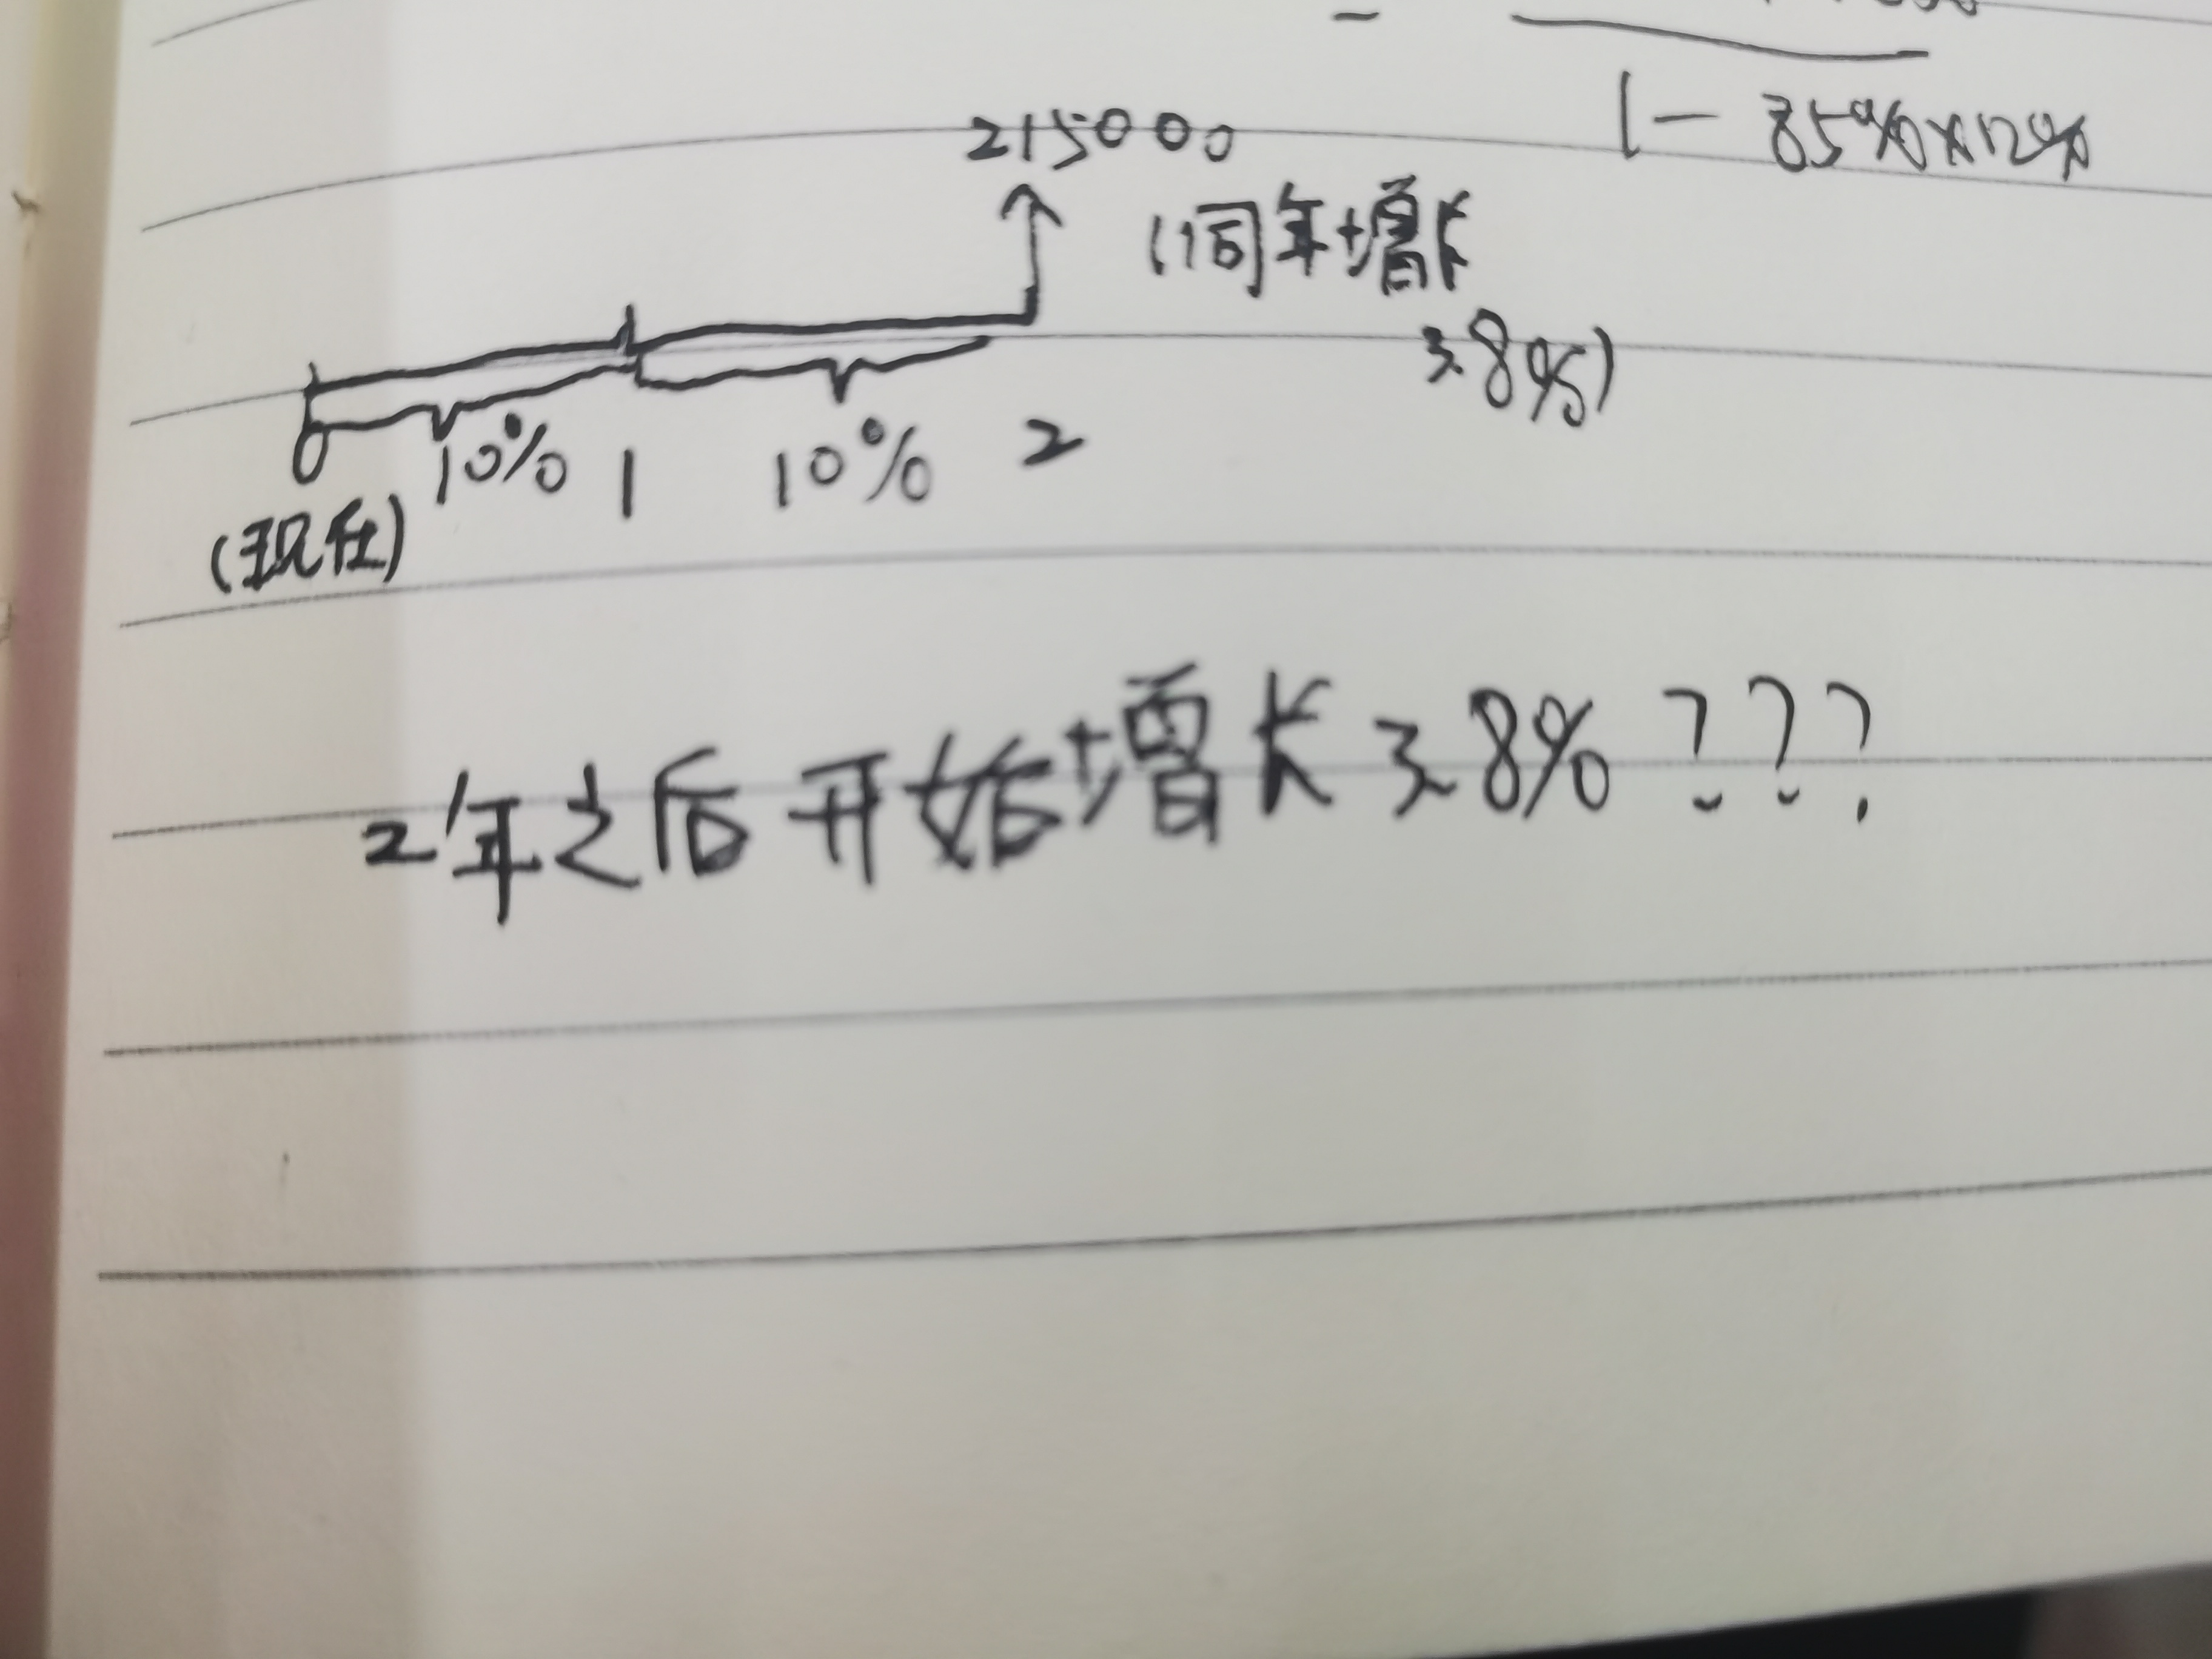 1-85%×12%
215000
(同年增长
3.8%)
0 10% 1 10% 2
(现在)
2年之后开始增长3.8%???